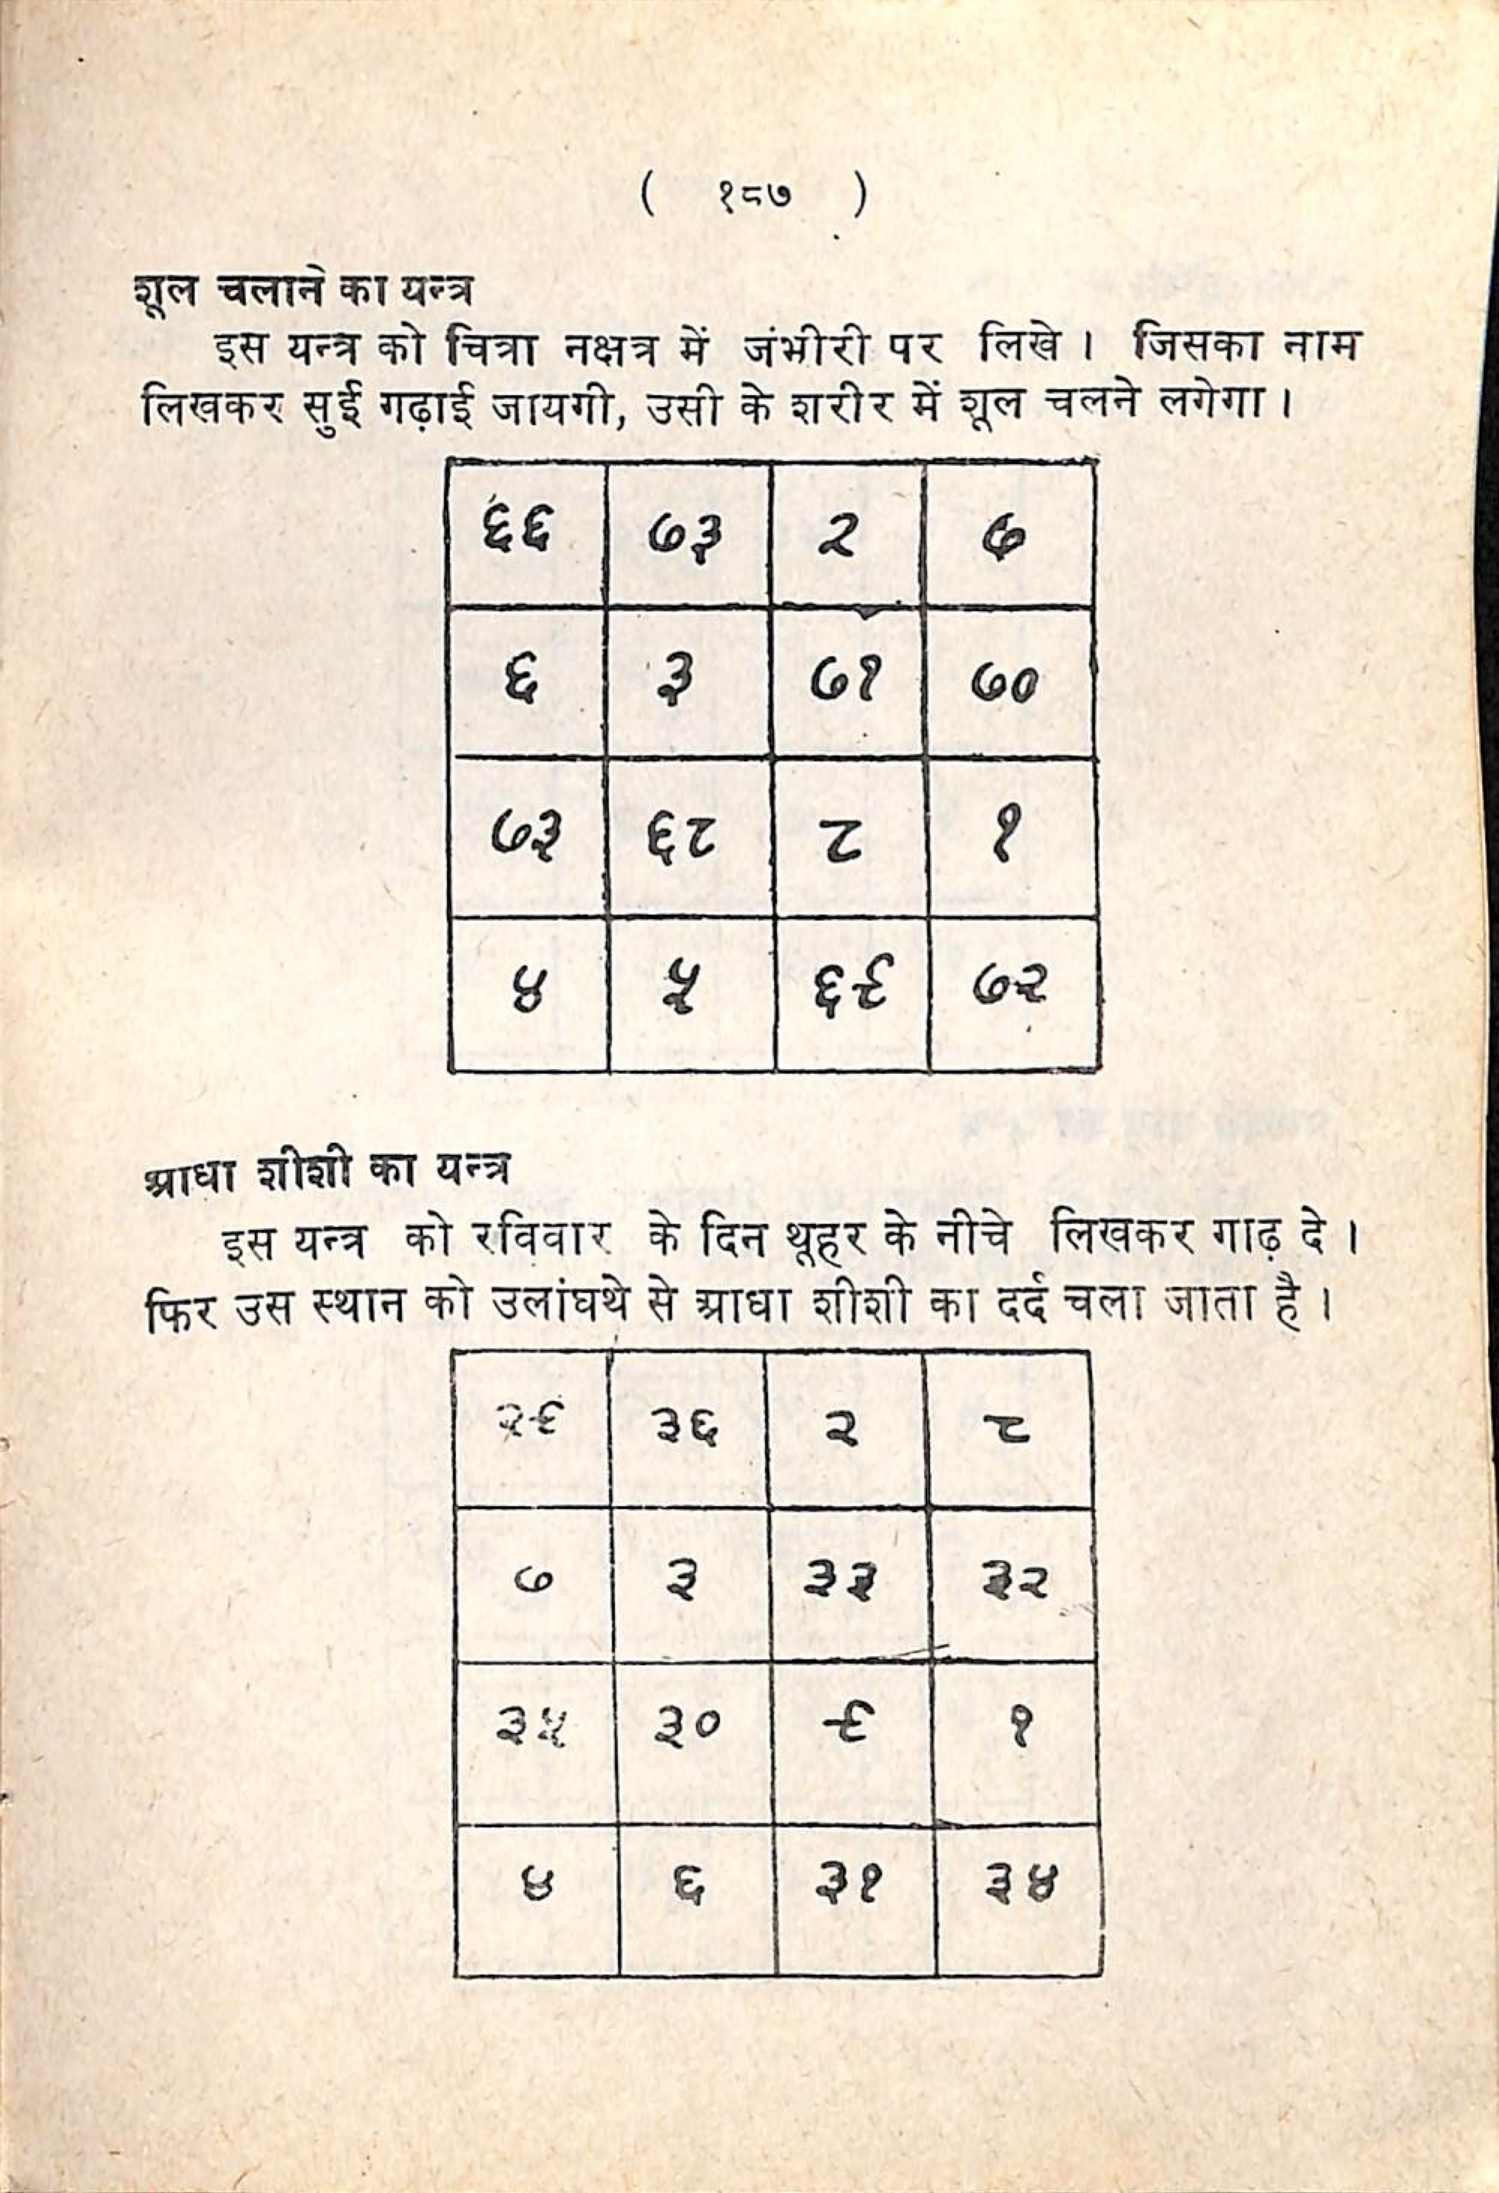 ( १८७ )
शूल चलाने का यन्त्र
इस यन्त्र को चित्रा नक्षत्र में जंभीरी पर लिखे। जिसका नाम
लिखकर सुई गढ़ाई जायगी, उसी के शरीर में शूल चलने लगेगा।
६६ ७३ २ ७
६ ३ ७१ ७०
७३ ६८ ८ १
४ ५ ६९ ७२
आधा शीशी का यन्त्र
इस यन्त्र को रविवार के दिन थूहर के नीचे लिखकर गाढ़ दे।
फिर उस स्थान को उलांघथे से आधा शीशी का दर्द चला जाता है।
२९ ३६ २ ८
७ ३ ३३ ३२
३५ ३० ९ १
४ ६ ३१ ३४